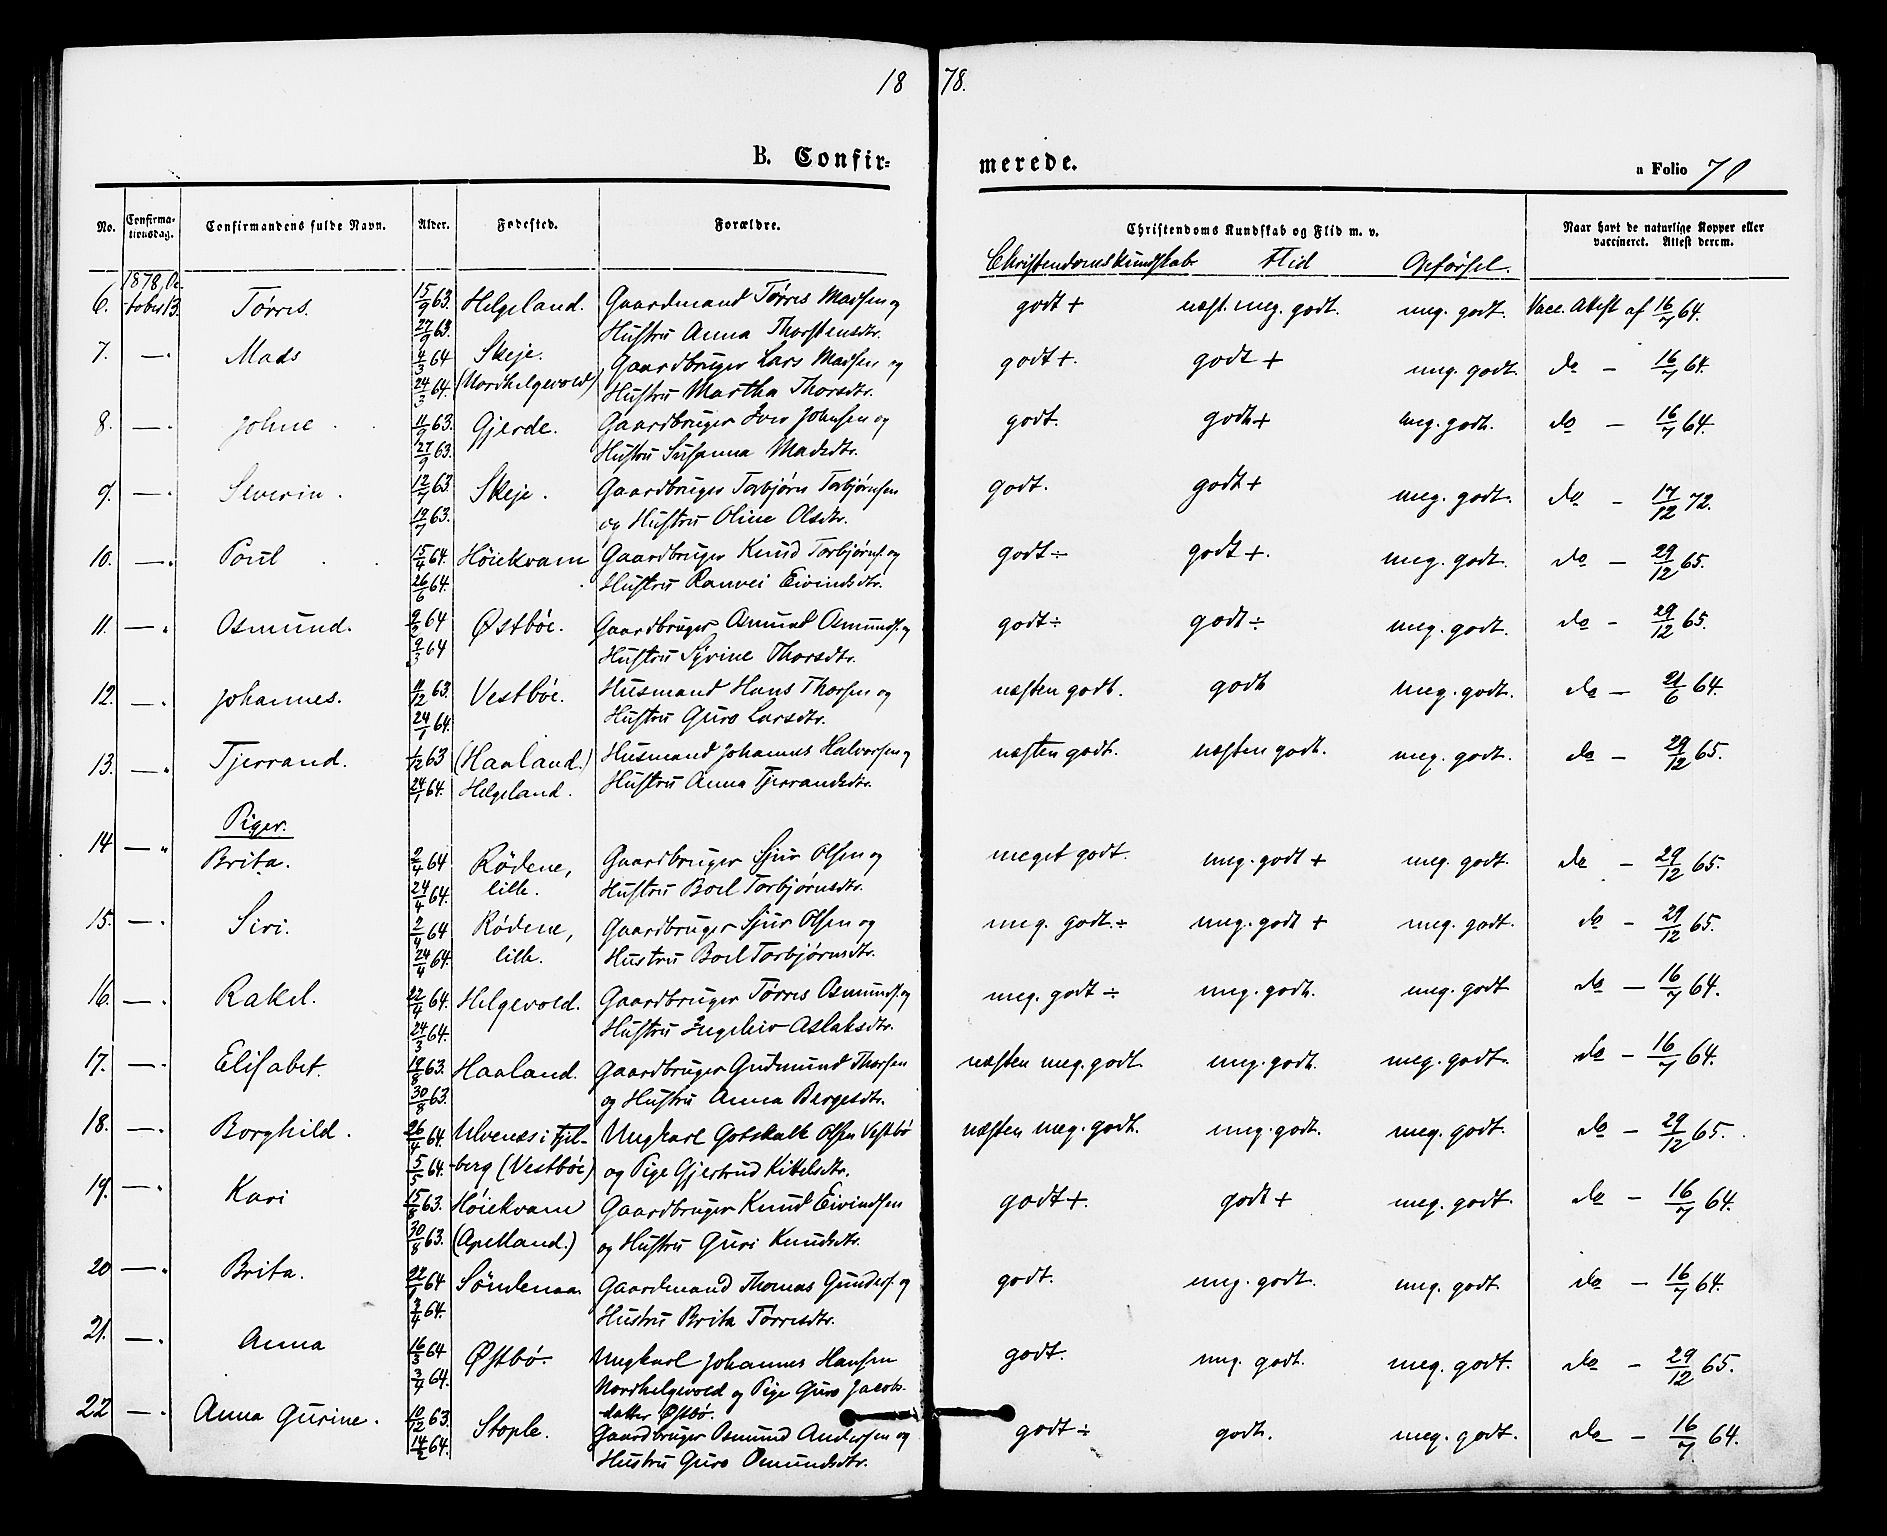 1878.
B. Confirmerede.
n Folio 70
No. Confirmationsdag. Confirmandens fulde Navn. Alder. Fødested. Forældre. Christendoms Kundskab og Flid m. v. Naar havt de naturlige Kopper eller vaccineret. Attest derom.
Christendomskundskab Flid Opførsel.
6. 1878, October 13. Tørres. 15/9 63. 27/9 63. Helgeland. Gaardmand Tørres Madsen og Hustru Anna Thorstensdtr. godt + næst. meg. godt. meg. godt. Vacc. Attest af 16/7 64.
7. — " Mads 4/3 64 24/3 64. Skeje. (Nordhelgevold) Gaardbruger Lars Madsen og Hustru Martha Thorsdtr. godt +. godt + meg. godt. do — 16/7 64.
8. — " Johne 11/9 63. 27/9 63. Gjerde. Gaardbruger Iver Johnsen og Hustru Susanna Madsdtr. godt. godt + meg. godt. do — 16/7 64.
9. — " Severin. 12/7 63. 19/7 63. Skeje. Gaardbruger Torbjørn Torbjørnsen og Hustru Oline Olsdtr. godt. godt + meg. godt. do — 17/12 72.
10. — " Poul 15/4 64. 26/6 64. Høiekvam Gaardbruger Knud Torbjørns. og Hustru Ranvei Eivindsdtr. godt ÷ godt +. meg. godt. do — 29/12 65.
11. — " Osmund. 9/2 64 9/3 64 Østbøe. Gaardbruger Osmund Osmunds. og Hustru Syrine Thorsdtr. godt ÷ godt ÷ meg. godt. do - 29/12 65.
12. — " Johannes. 11/12 63. 24/1 64. Vestbøe. Husmand Hans Thorsen og Hustru Guro Larsdtr. næsten godt. godt meg. godt. do — 21/6 64.
13. — " Tjerrand. 1/12 63 24/1 64. (Haaland.) Helgeland. Husmand Johannes Halvorsen og Hustru Anna Tjerrandsdtr. næsten godt. næsten godt. meg. godt. do — 29/12 65.
Piger.
14 — " Brita. 2/4 64 24/4 64. Rødene, lille. Gaardbruger Sjur Olsen og Hustru Boel Torbjørnsdtr. meget godt. meg. godt + meg. godt. do — 29/12 65.
15. — " Siri. 2/4 64 24/4 64. Rødene, lille. Gaardbruger Sjur Olsen og Hustru Boel Torbjørnsdtr. meg. godt. ÷ meg. godt + meg. godt. do — 29/12 65.
16. — " Rakel. 22/4 64. 24/3 64. Helgevold. Gaardbruger Tørres Osmunds. og Hustru Ingebor Aslaksdtr. meg. godt ÷ meg. godt. meg. godt do — 16/7 64.
17. — " Elisabet. 19/8 63. 30/8 63. Haaland. Gaardbruger Gudmund Thorsen og Hustru Anna Børgesdtr. næsten meg. godt meg. godt. meg. godt. do — 16/7 64.
18. — " Borghild. 26/4 64. 5/5 64. Ulvenæs i Fjelberg (Vestbøe) Ungkarl Gotskalk Olsen Vestbø og Pige Gjertrud Kittelsdtr. næsten meg. godt. meg. godt. meg. godt. do — 29/12 65.
19. — " Kari 15/8 63. 30/8 63. Høiekvam (Apelland.) Gaardbruger Knud Eivindsen og Hustru Guri Knudsdtr. godt +. godt + meg. godt. do — 16/7 64.
20 — " Brita. 22/1 64 3/4 64. Søndenaa. Gaardmand Thomas Gunders. og Hustru Brita Tørresdtr. godt. meg. godt. meg. godt. do — 16/7 64.
21. — " Anna 16/3 64 3/4 64. Østbø. Ungkarl Johannes Hansen Nordhelgevold og Pige Guro Jacobsdatter Østbø. godt. meg. godt. meg. godt. do — 29/12 65.
22 — " Anna Gurine. 10/12 63. 14/2 64. Stople. Gaardbruger Osmund Andersen og Hustru Guro Osmundsdtr. godt ÷ godt. meg. godt. do — 16/7 64.